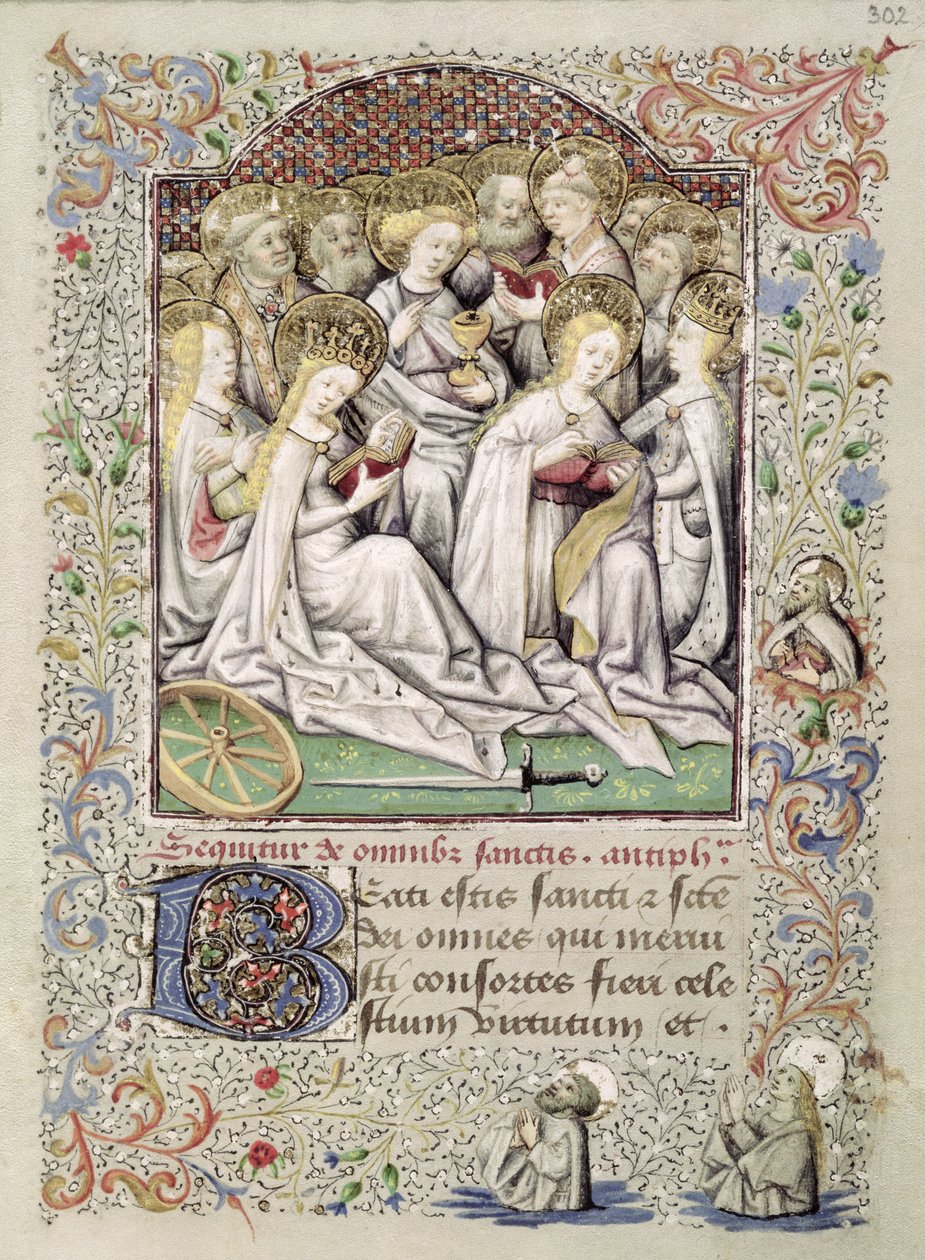 302
Sequitur de omnibz sanctis . antiphᵃ.
Beati estis sancti ⁊ scte
dei omnes qui meru
sti consortes fieri cele
stium virtutum et .